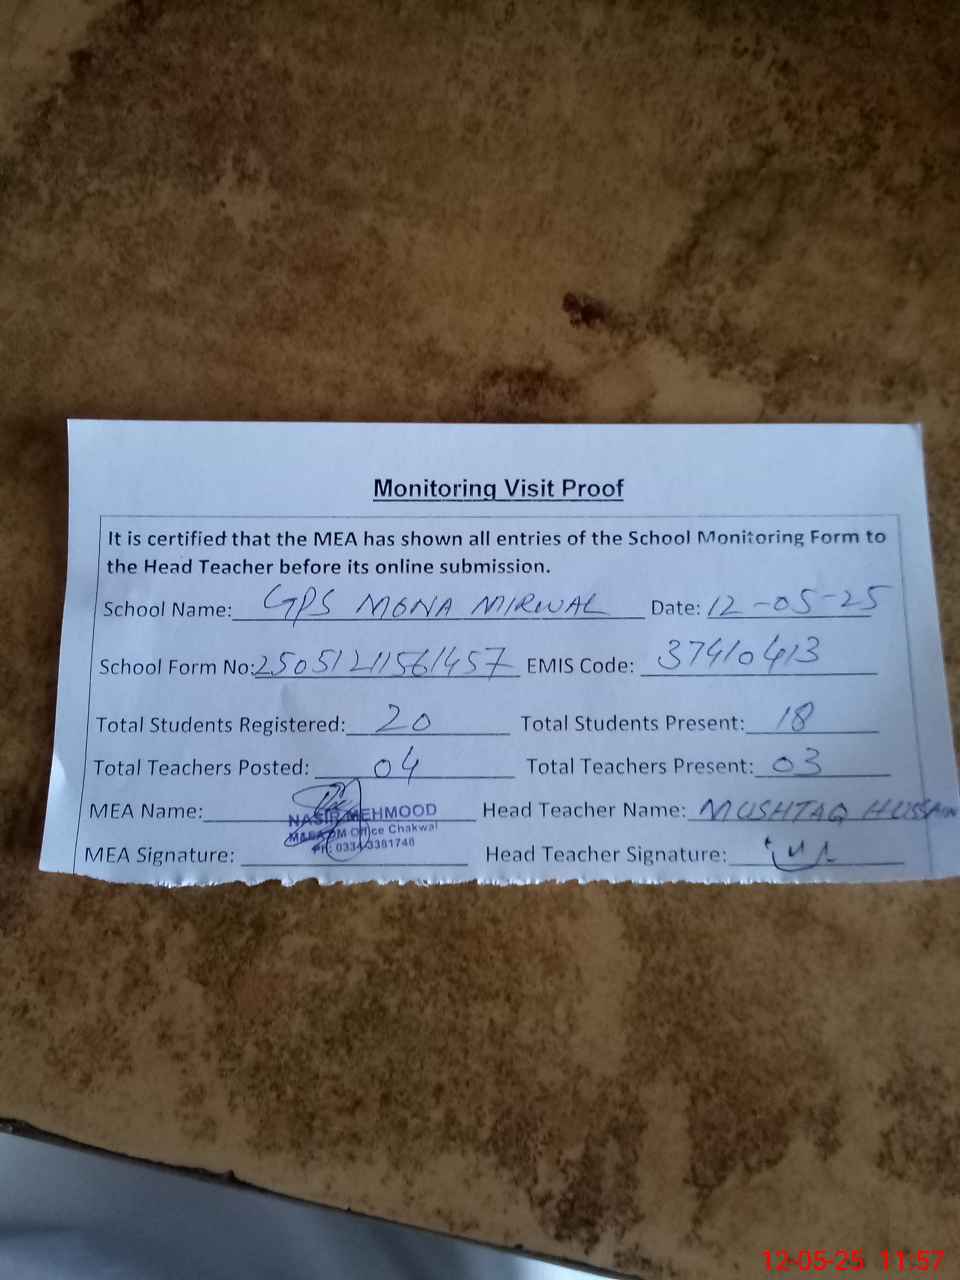 Monitoring Visit Proof
It is certified that the MEA has shown all entries of the School Monitoring Form to
the Head Teacher before its online submission.
School Name: GPS MONA MIRWAL Date: 12-05-25
School Form No: 25051211561457 EMIS Code: 37410413
Total Students Registered: 20 Total Students Present: 18
Total Teachers Posted: 04 Total Teachers Present: 03
MEA Name: NASIR MEHMOOD Head Teacher Name: MUSHTAQ HUSSAIN
Office Chakwal
Ph: 0334-3381748
MEA Signature: Head Teacher Signature:
12-05-25 11:57